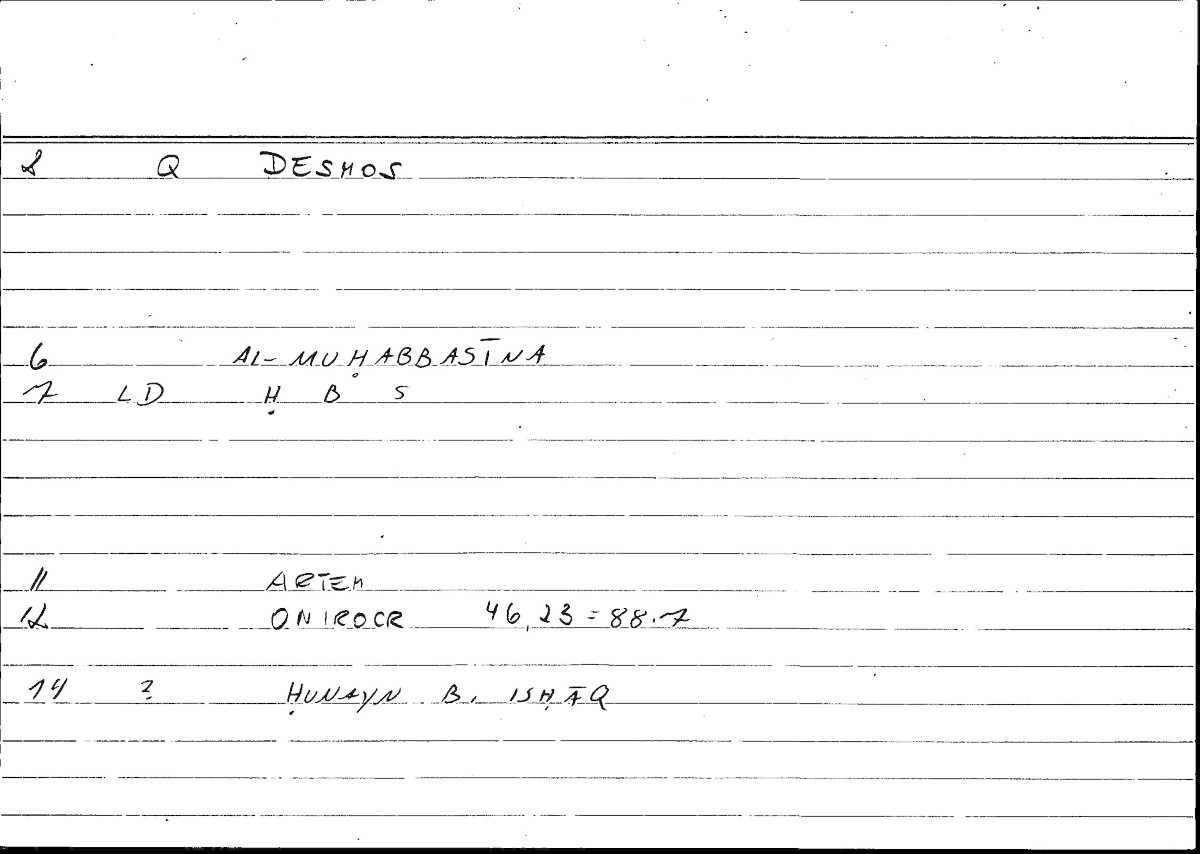 2 Q DESMOS
6 AL-MUḤABBASĪNA
7 LD Ḥ B S
11 ARTEM
12 ONIROCR 46,23=88.7
14 ? ḤUNAYN B. ISḤĀQ